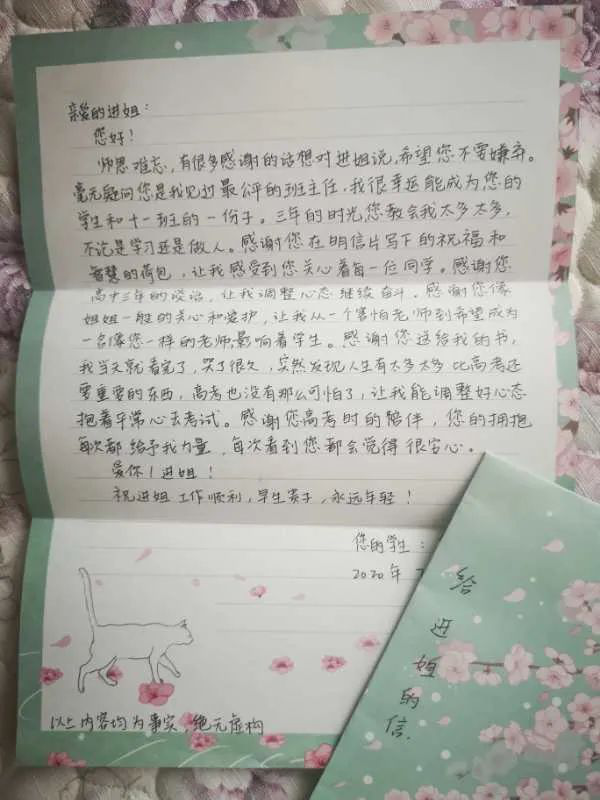 亲爱的进姐：
您好！
师恩难忘，有很多感谢的话想对进姐说，希望您不要嫌弃。
毫无疑问您是我见过最公平的班主任，我很幸运能成为您的
学生和十一班的一份子。三年的时光您教会我太多太多，
不论是学习还是做人。感谢您在明信片写下的祝福和
智慧的荷包，让我感受到您关心着每一位同学。感谢您
高中三年的谈话，让我调整心态继续奋斗。感谢您像
姐姐一般的关心和爱护，让我从一个害怕老师到希望成为
一名像您一样的老师，影响着学生。感谢您送给我的书，
我当天就看完了，哭了很久，突然发现人生有太多太多比高考还
要重要的东西，高考也没有那么可怕了，让我能调整好心态
抱着平常心去考试。感谢您高考时的陪伴，您的拥抱
每次都给予我力量，每次看到您都会觉得很安心。
爱你！进姐！
祝进姐工作顺利，早生贵子，永远年轻！
您的学生：
2020年
以上内容均为事实，绝无虚构
给进姐的信